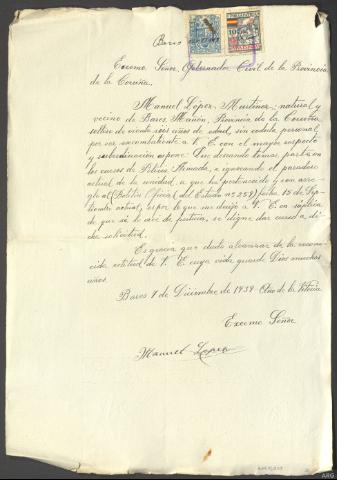 Bares
Excmo Señor, Gobernador Civil de la Provincia
de la Coruña.
Manuel López Martinez; natural y
vecino de Bares, Mañón, Provincia de la Coruña
soltero de veinte seis años de edad, sin cedula personal
por ser excombatiente a V. E con el mayor respecto
y subordinación expone: Que deseando tomar parte en
los cursos de Policia Armada, e ignorando el paradero
actual de la unidad, a que ha pertenecido y con arre-
glo al Boletin Oficial del Estado nº 258 fecha 15 de Sep-
tiembre actual, es por lo que se dirije a V. E en súplica
de que si lo cre de justicia, se digne dar curso a di-
cha solicitud.
Es gracia que
V. E. cuya vida guarde Dios muchos
años.
Bares 7 de Diciembre de 1939. Año de la Victoria
Excmo Señor
Manuel López
ARG